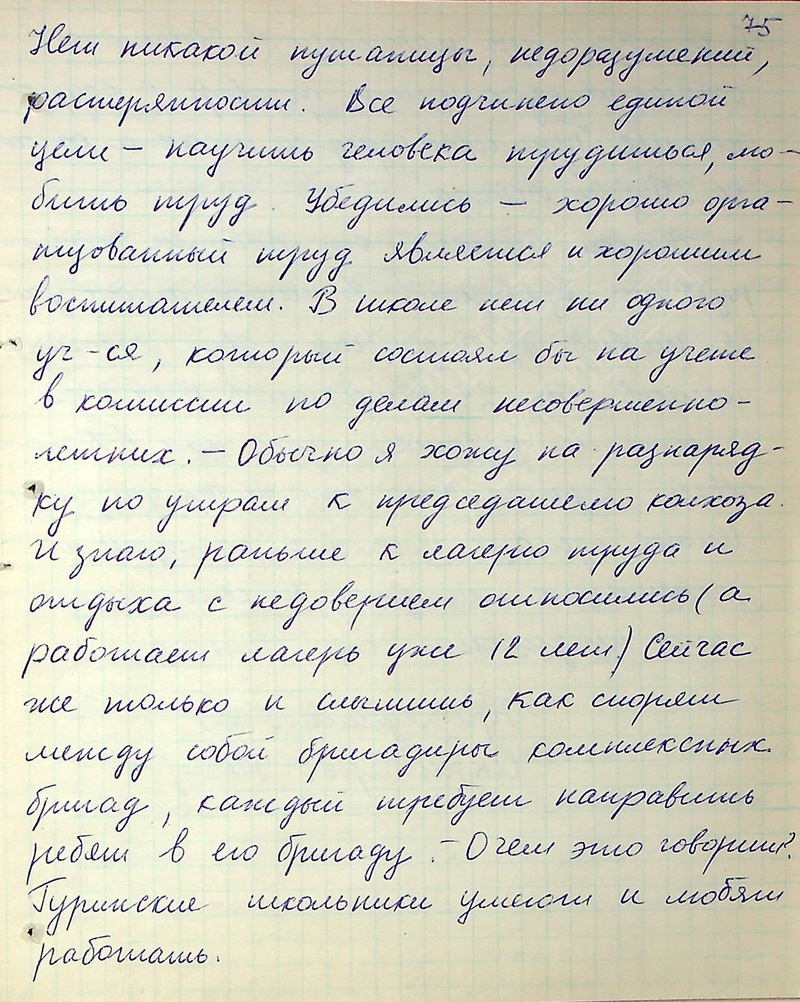 75
Нет никакой путаницы, недоразумений,
растерянности. Все подчинено единой
цели – научить человека трудиться, лю-
бить труд. Убедились – хорошо орга-
низованный труд является и хорошим
воспитателем. В школе нет ни одного
уч-ся, который состоял бы на учете
в комиссии по делам несовершенно-
летних. – Обычно я хожу на разнаряд-
ку по утрам к председателю колхоза.
И знаю, раньше к лагерю труда и
отдыха с недоверием относились (а
работает лагерь уже 12 лет) Сейчас
же только и слышишь, как спорят
между собой бригадиры комплексных
бригад, каждый требует направить
ребят в его бригаду. – О чем это говорит?
Гуринские школьники умеют и любят
работать.